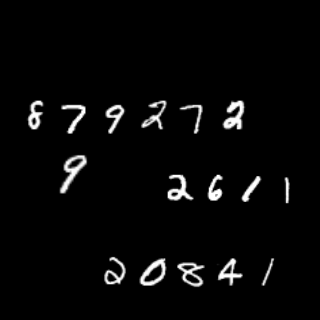 879272
9
2611
20841